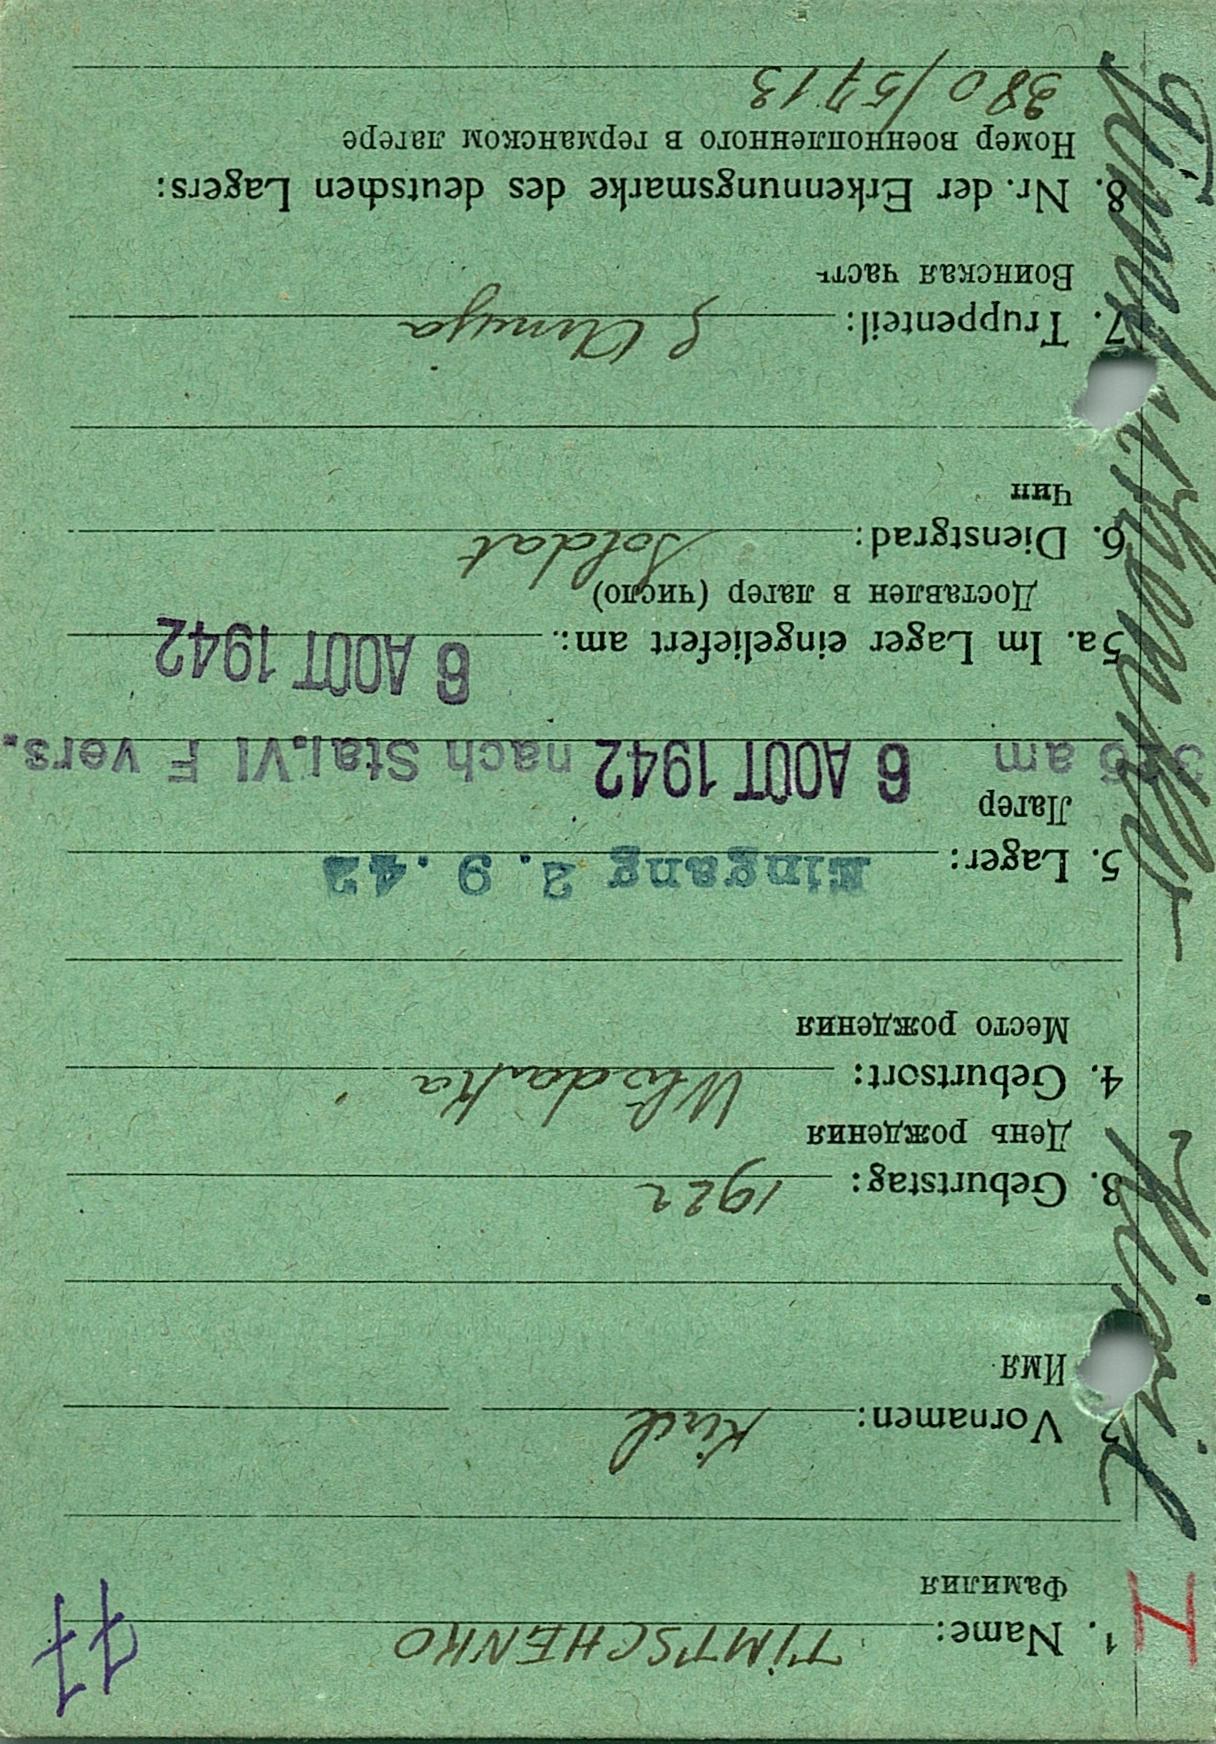 I
1. Name: TIMTSCHENKO
Фамилия
77
Vornamen: Kiril
Имя
3. Geburtstag: 1922
День рождения
4. Geburtsort:
Место рождения
5. Lager: Eingang 2.9.42
Лагер
326 am 6 AOÛT 1942 nach Stal.VI F vers.
5a. Im Lager eingeliefert am: 6 AOÛT 1942
Доставлен в лагер (число)
6. Dienstgrad: Soldat
Чин
7. Truppenteil:
Воинская часть
8. Nr. der Erkennungsmarke des deutschen Lagers:
Номер военнопленного в германском лагере
380/5713
Timtschenko Kiril